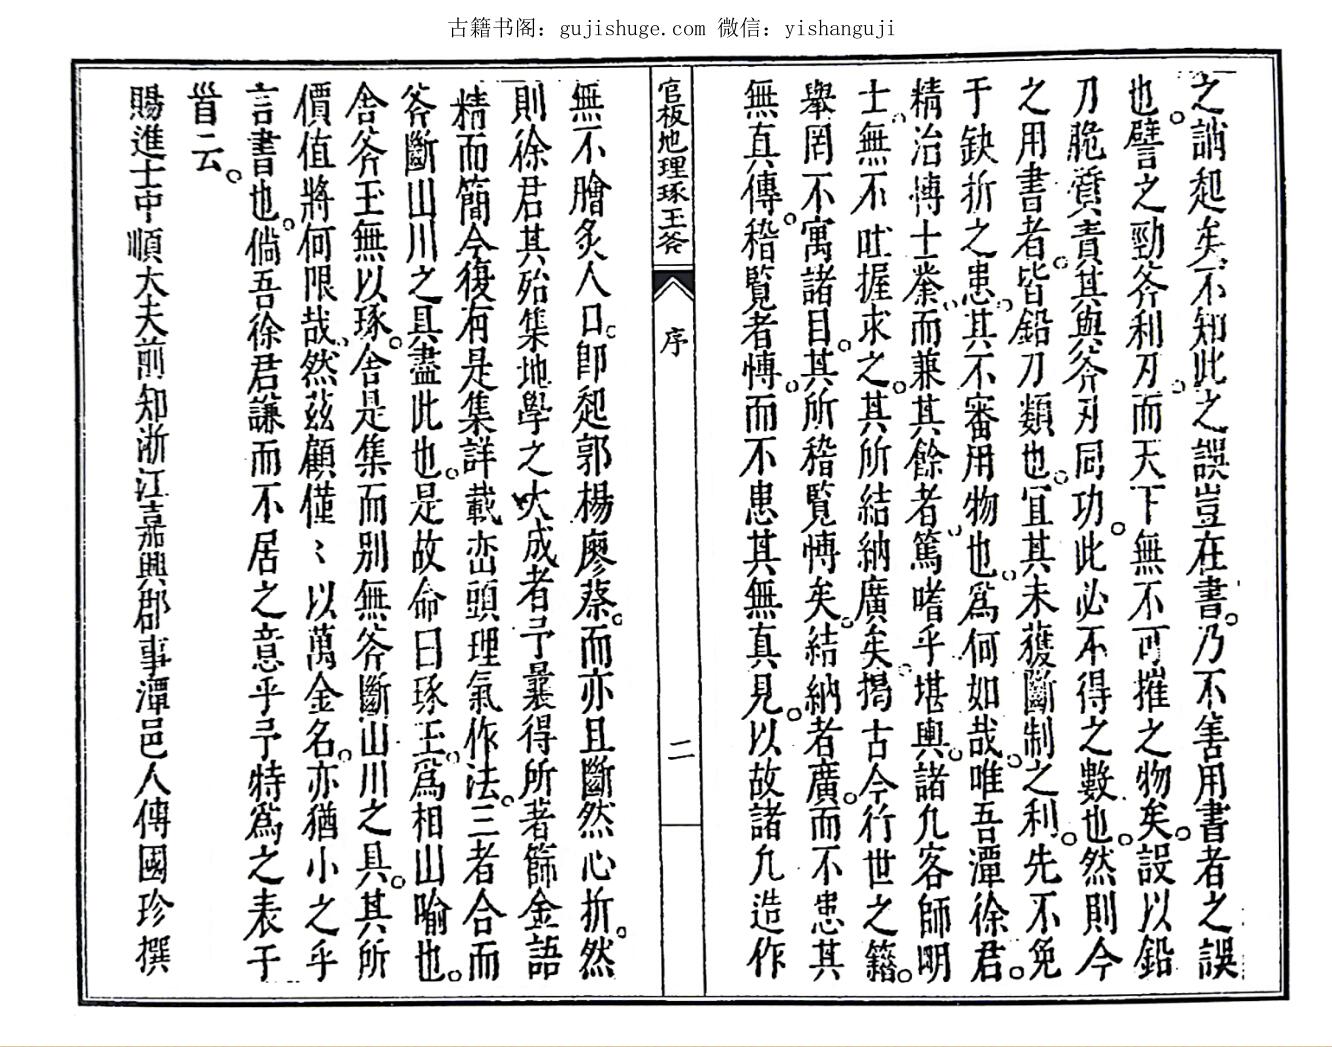 古籍书阁：gujishuge.com 微信：yishanguji
之誚起矣不知此之誤豈在書。乃不善用書者之誤
也。譬之勁斧利刃。而天下無不可摧之物矣。設以鉛
刀脆質責其與斧刃同功。此必不得之數也。然則今
之用書者。皆鉛刀類也。宜其未獲斷制之利。先不免
于缺折之患。其不審用物也。爲何如哉。唯吾潭徐君。
精治博士業。而兼其餘者。篤嗜乎堪輿。諸凡客師明
士。無不吐握求之。其所結納廣矣。揭古今行世之籍。
舉罔不寓諸目。其所稽覽博矣。結納者廣。而不患其
無真傳。稽覽者博。而不患其無真見。以故諸凡造作
官板地理琢玉斧
序
二
無不膾炙人口。卽起郭楊廖蔡。而亦且斷然心折。然
則徐君其殆集地學之大成者予曩得所著篩金語
精而簡今復有是集詳載巒頭理氣作法。三者合而
斧斷山川之具盡此也。是故命曰琢玉。爲相山喻也。
舍斧玉無以琢。舍是集而別無斧斷山川之具。其所
價值將何限哉。然茲顧僅〻以萬金名。亦猶小之乎
言書也。倘吾徐君謙而不居之意乎予特爲之表于
首云。
賜進士中順大夫前知浙江嘉興郡事潭邑人傅國珍撰